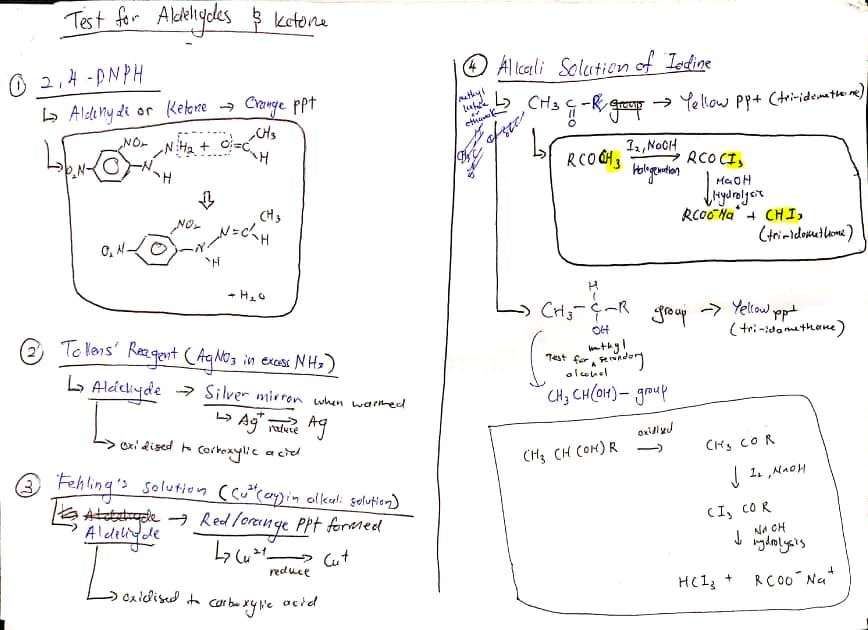 Test for Aldehydes & Ketone
① 2,4-DNPH
↳ Aldehyde or Ketone → Orange ppt
NO₂
O₂N
N H₂ + O = C
CH₃
H
N
H
⇩
NO₂
O₂N
N = C
CH₃
H
N
H
+ H₂O
② Tollens' Reagent (AgNO₃ in excess NH₃)
↳ Aldehyde → Silver mirror when warmed
↳ Ag⁺ → Ag
reduce
↳ oxidised to carboxylic acid
③ Fehling's solution (Cu²⁺(aq) in alkali solution)
↳ Aldehyde → Red/orange ppt formed
↳ Cu²⁺ → Cu⁺
reduce
↳ oxidised to carboxylic acid
④ Alkali Solution of Iodine
methyl
ketone
or
ethanol
↳ CH₃ C - R group → Yellow ppt (tri-idomethane)
O
↳ RCOCH₃ I₂, NaOH → RCOCI₃
Halogenation
↓ NaOH
Hydrolysis
RCOO⁻Na⁺ + CHI₃
(tri-idomethane)
H
↳ CH₃ - C - R group → Yellow ppt
OH
(tri-idomethane)
methyl
Test for ∧ secondary
alcohol
CH₃CH(OH)- group
CH₃ CH (OH) R oxidised → CH₃ CO R
↓ I₂, NaOH
CI₃ CO R
↓ NaOH
hydrolysis
HCI₃ + RCOO⁻Na⁺